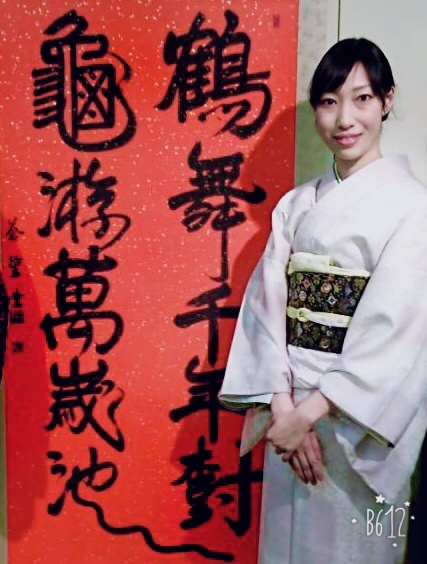 鶴舞千年樹
龜游萬歳池
B612